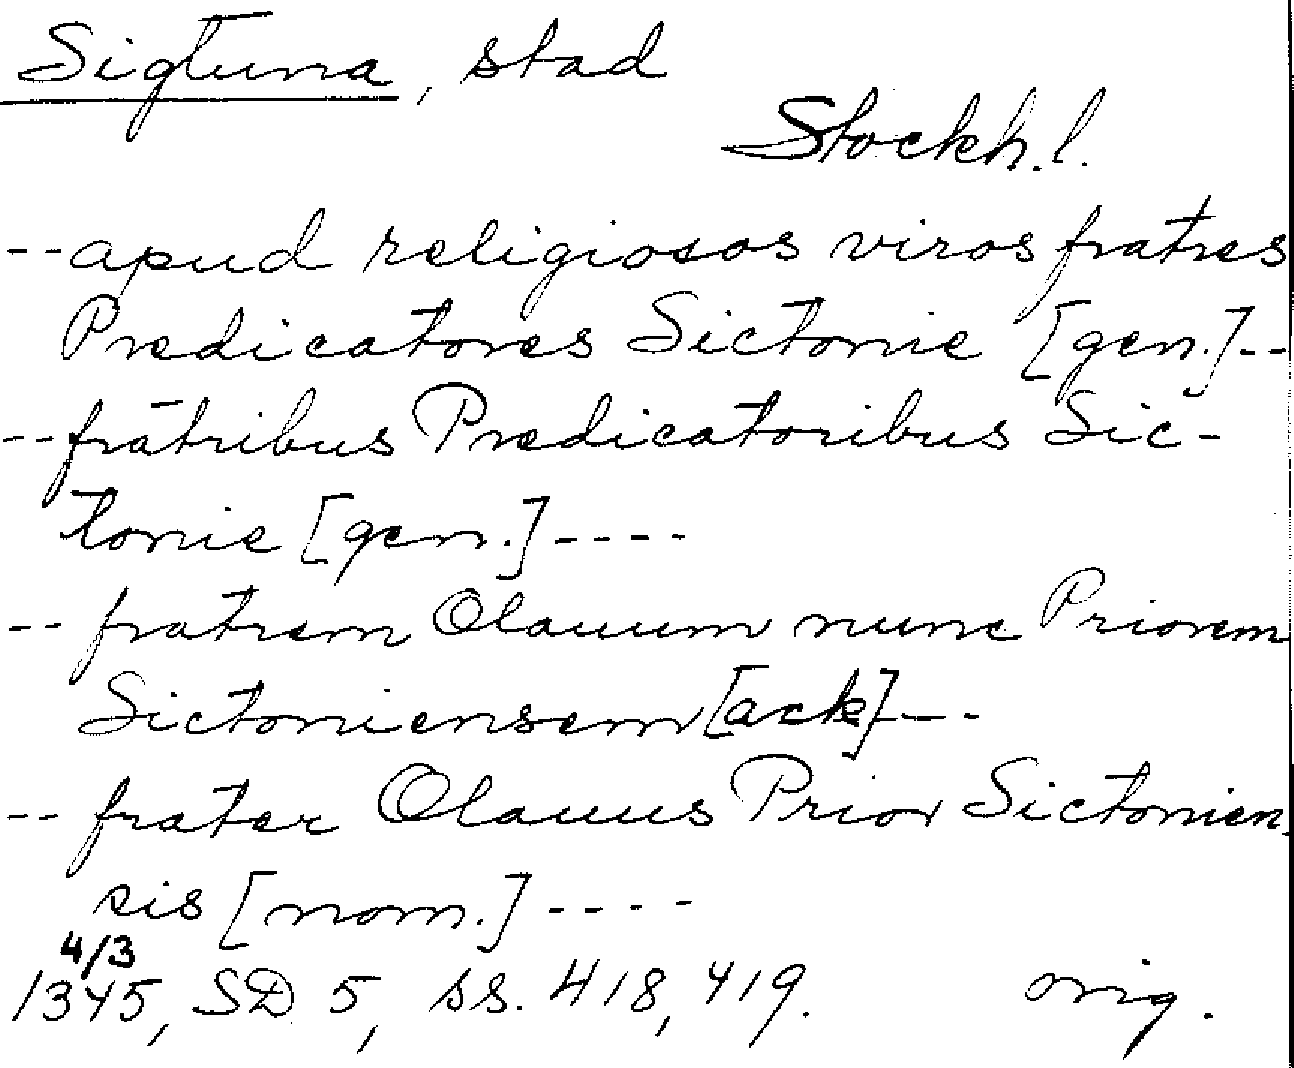 Sigtuna, stad
Stockh.l.
--apud religiosos viros fratres
Predicatores Sictonie [gen.]--
--fratribus Predicatoribus Sic-
tonie [gen.]----
-- fratrem Olauum nunc Priorem
Sictoniensem [ack]---
-- frater Olauus Prior Sictonien-
sis [nom.]----
4/3
1345, SD 5, ss. 418, 419. orig.